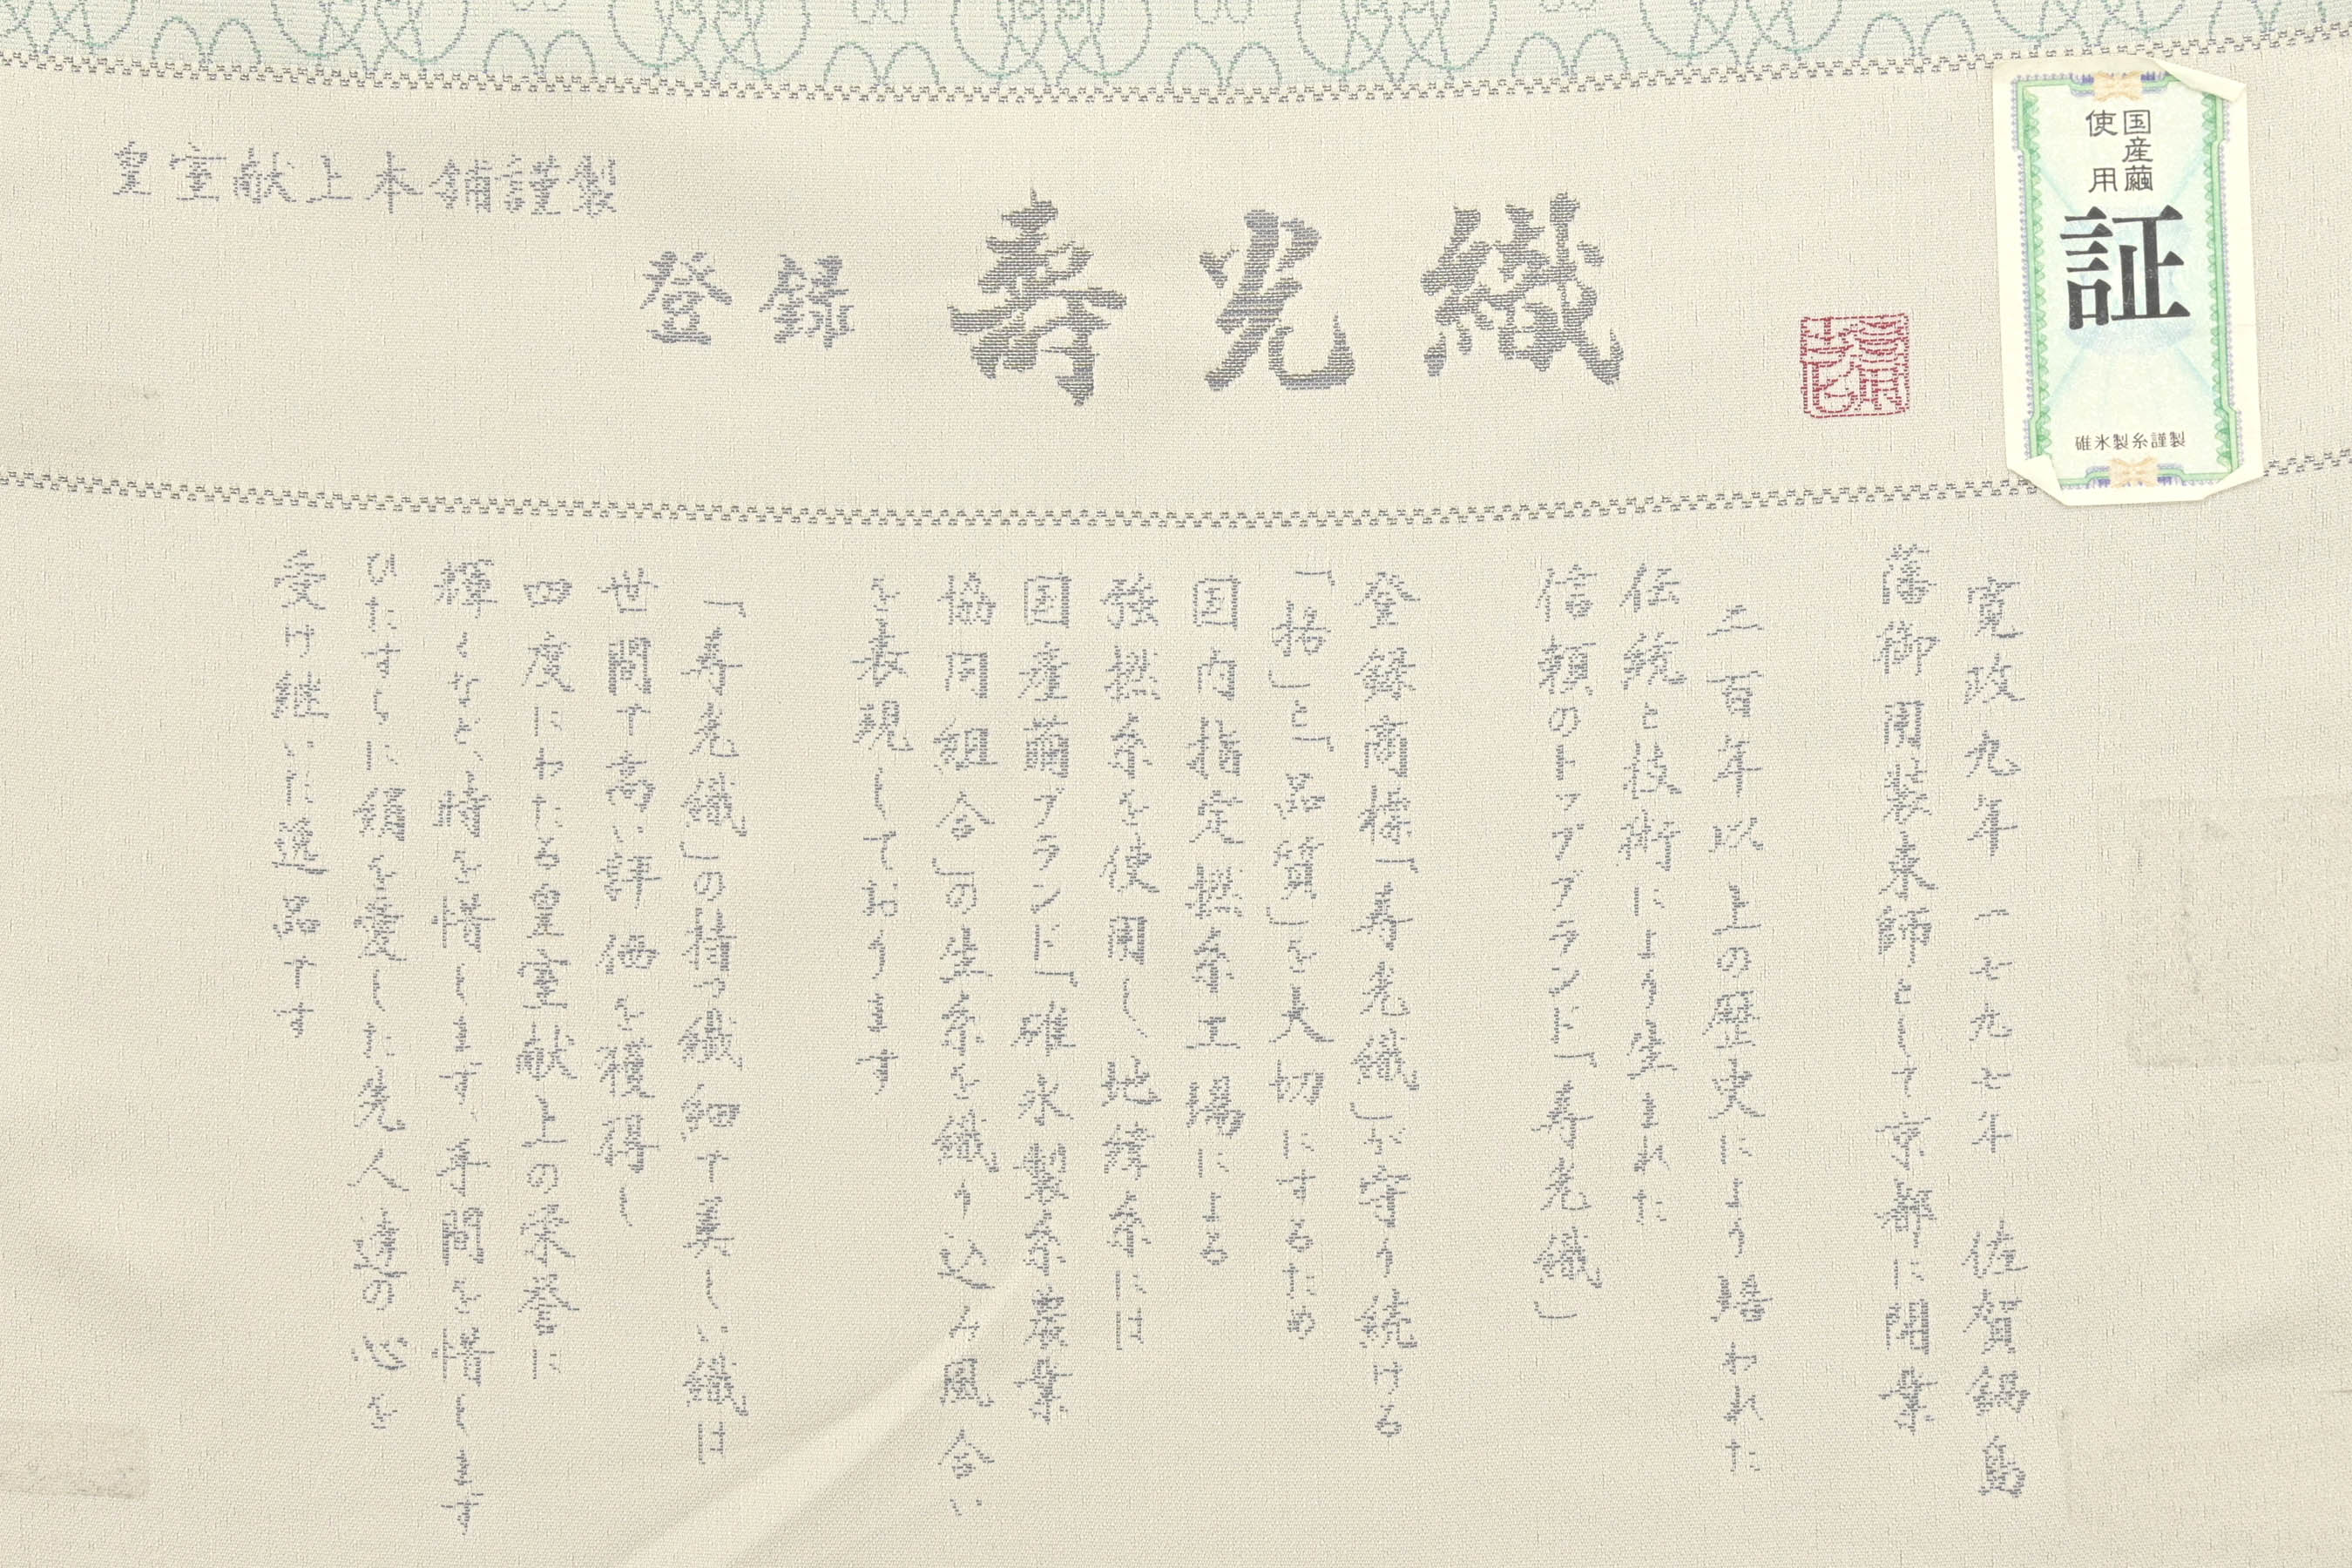 皇室献上本舗謹製
登録 寿光織
国産繭
使用
証
碓氷製糸謹製
寛政九年 一七九七年 佐賀鍋島
藩御用装束師として京都に開業
二百年以上の歴史により培われた
伝統と技術により生まれた
信頼のトップブランド「寿光織」
登録商標「寿光織」が守り続ける
「格」と「品質」を大切にするため
国内指定撚糸工場による
強撚糸を使用し地緯糸には
国産繭ブランド「碓氷製糸農業
協同組合」の生糸を織り込み風合い
を表現しております
「寿光織」の持つ繊細で美しい織は
世間で高い評価を獲得し
四度にわたる皇室献上の栄誉に
輝くなど、時を惜します、手間を惜します
ひたすらに絹を愛した先人達の心を
受け継いだ逸品です